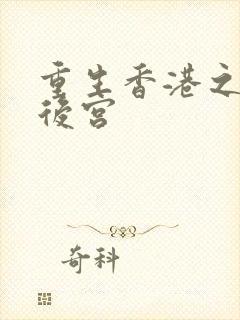 重生香港之
後宮
奇科